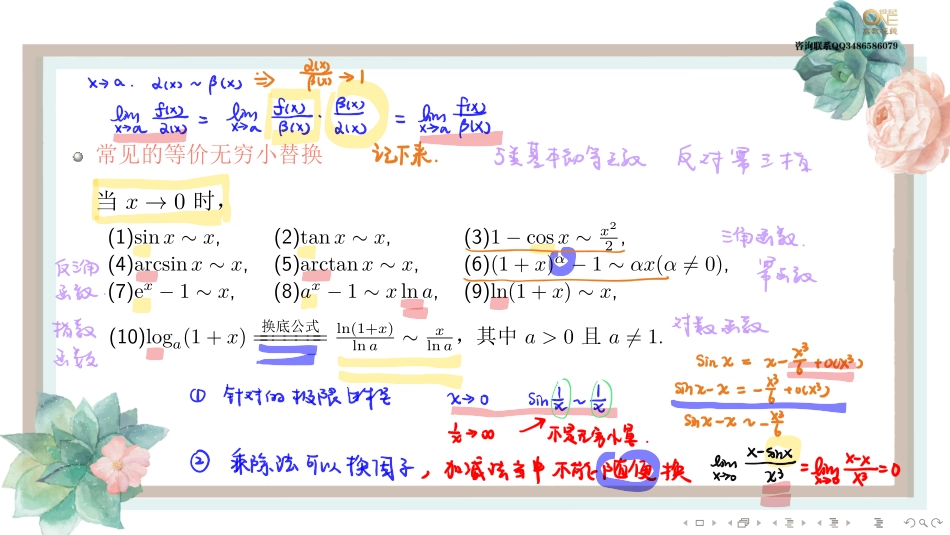 ONE
咨询联系QQ3486586079
x→a. α(x) ~ β(x) ⇒ α(x)/β(x) → 1
lim x→a f(x)/α(x) = lim x→a f(x)/β(x) · β(x)/α(x) = lim x→a f(x)/β(x)
常见的等价无穷小替换 记下来. 5类基本初等函数 反对幂三指
当 x → 0 时，
(1)sin x ~ x, (2)tan x ~ x, (3)1 − cos x ~ x²/2, 三角函数.
反三角函数. (4)arcsin x ~ x, (5)arctan x ~ x, (6)(1 + x)^α − 1 ~ αx(α ≠ 0), 幂函数
(7)e^x − 1 ~ x, (8)a^x − 1 ~ x ln a, (9)ln(1 + x) ~ x,
指数函数 (10)log_a(1 + x) 换底公式 ln(1+x)/ln a ~ x/ln a，其中 a > 0 且 a ≠ 1. 对数函数
sin x = x − x³/6 + o(x³)
sin x − x = −x³/6 + o(x³)
sin x − x ~ −x³/6
① 针对的极限过程 x→0 sin 1/x ~ 1/x
1/x → ∞ 不是无穷小量.
② 乘除法可以换因子，加减法当中不能随便换 lim x→0 (x−sinx)/x³ = lim x→0 (x−x)/x³ = 0